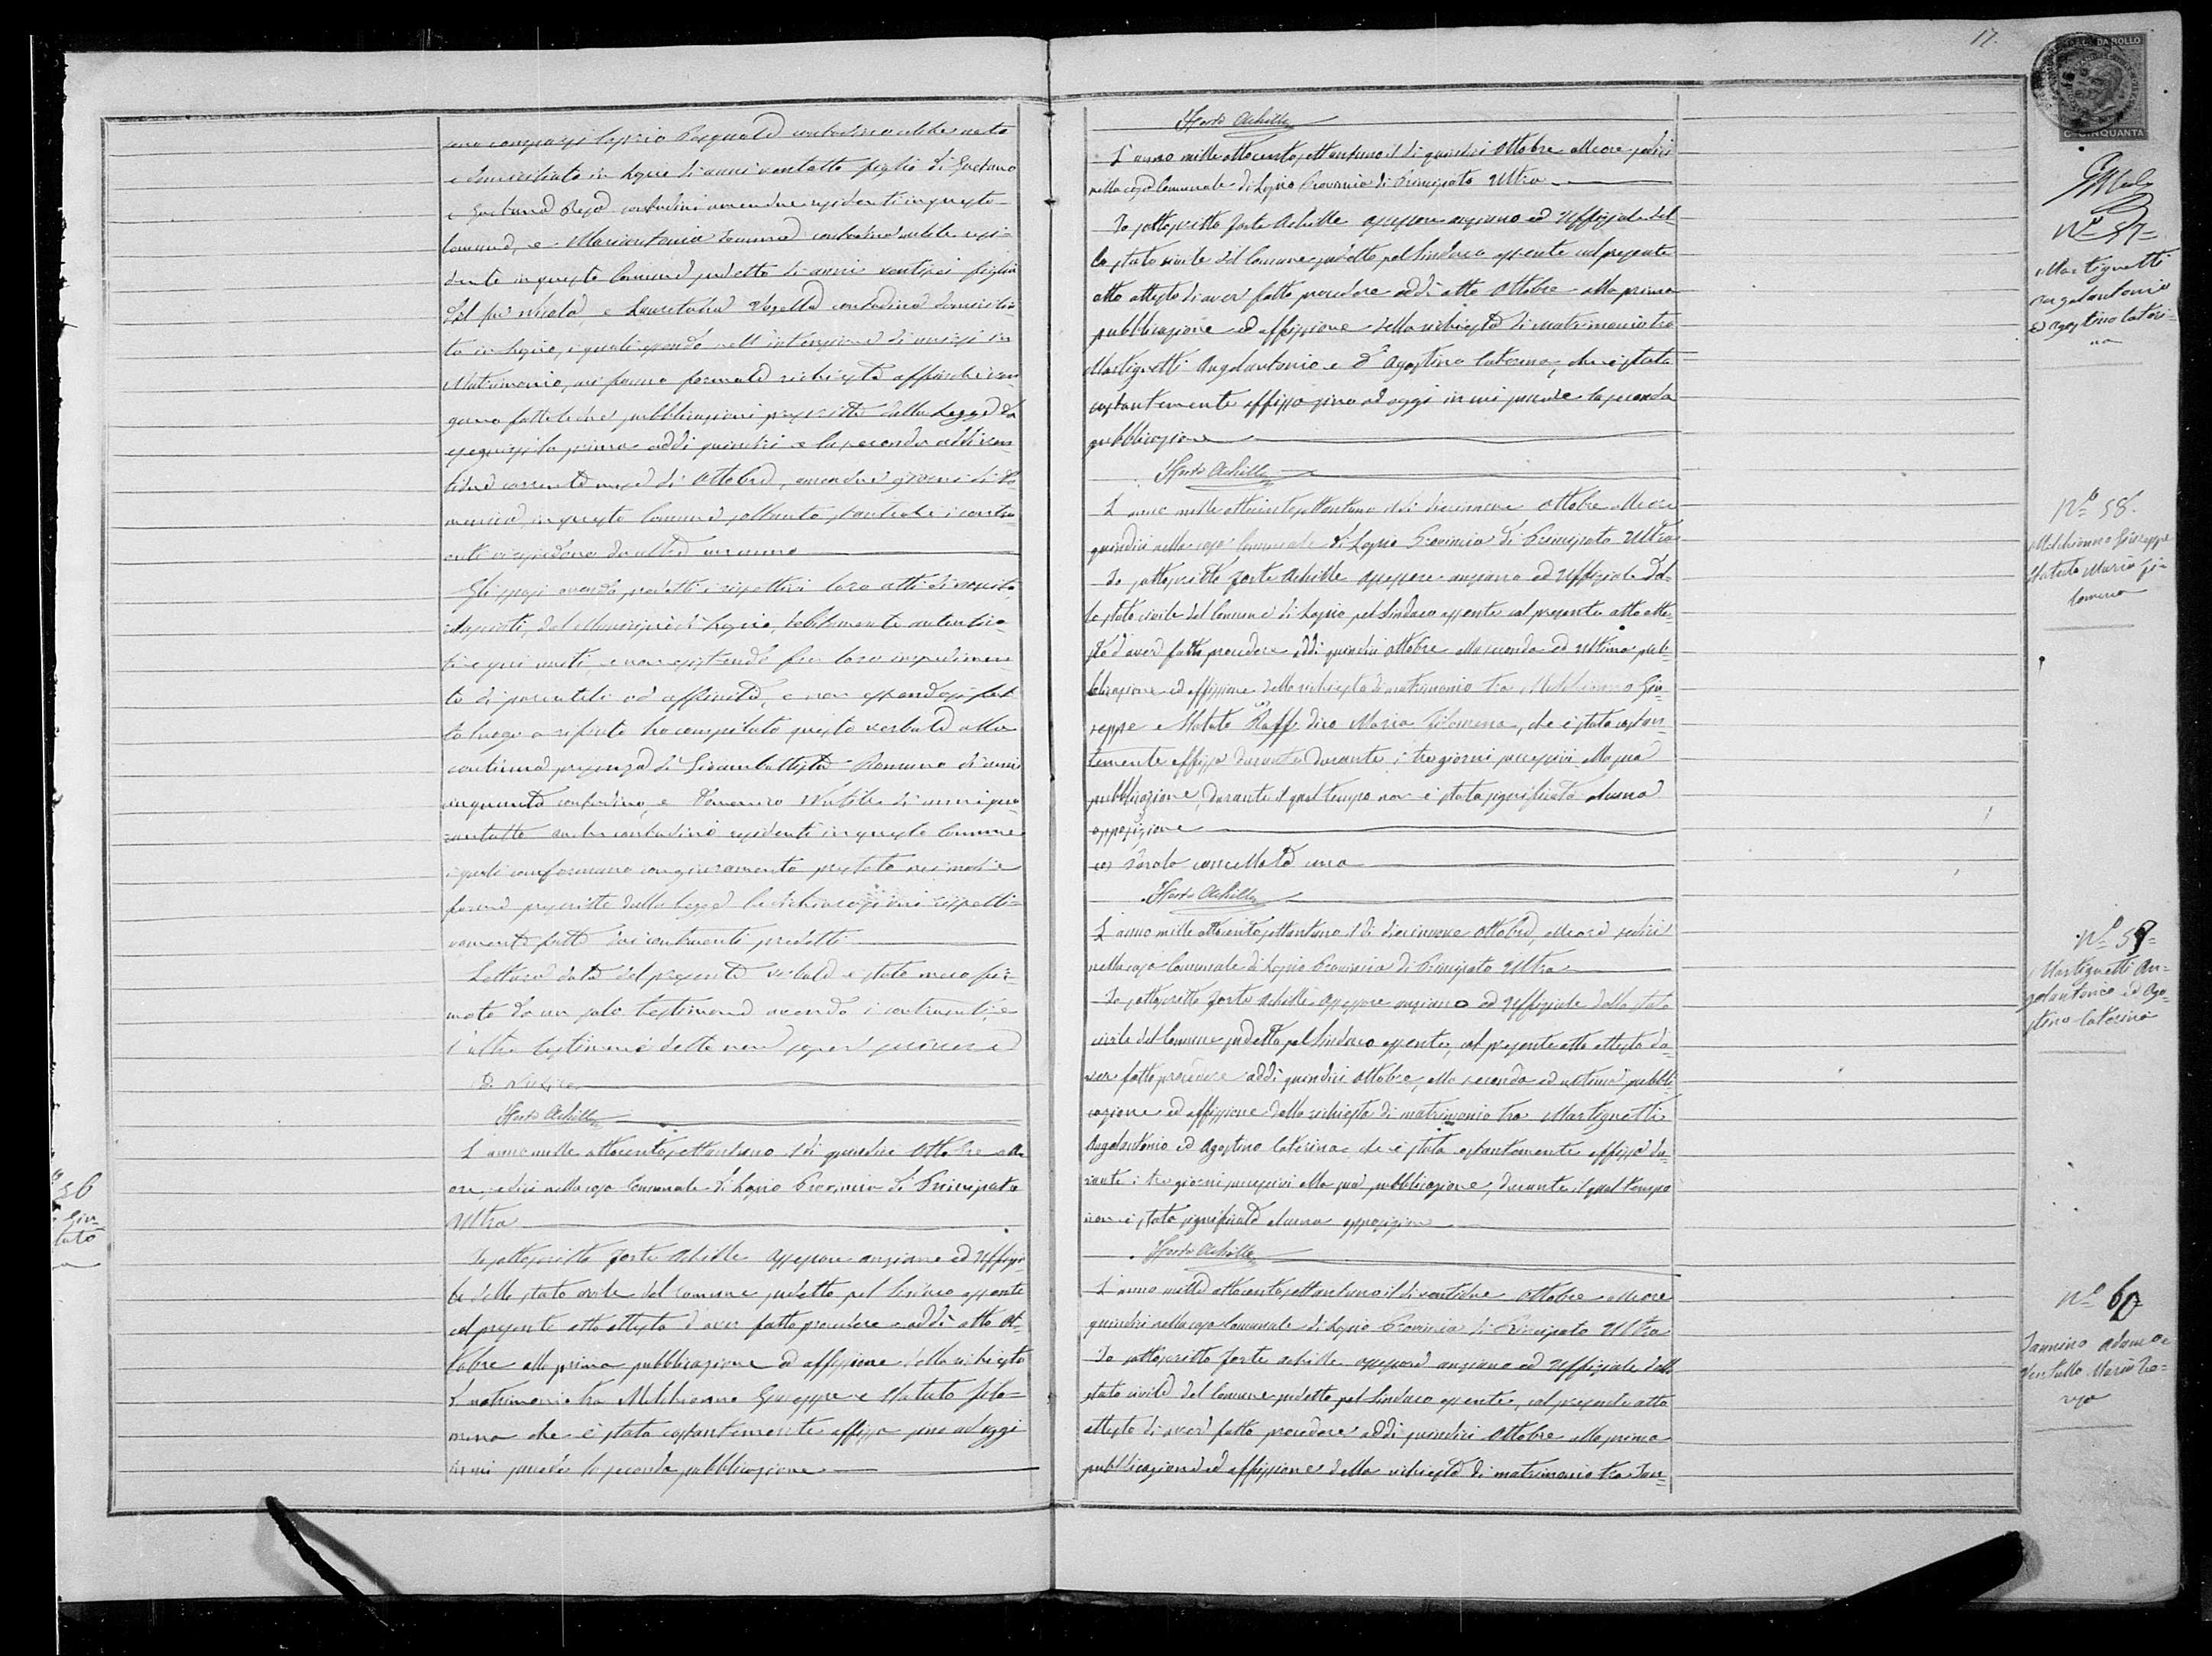 sono comparsi Lapio Pasquale contadino celibe nato
e domiciliato in Lapio di anni ventotto figlio di Gaetano
e Gaetana contadini amendue residenti in questo
Comune, e Mariantonia contadina nubile resi-
dente in questo Comune predetto di anni ventisei figlia
del fu Nicola, e contadina domicilia-
ta in Lapio, i quali essendo nell'intenzione di unirsi in
Matrimonio, mi fanno formale richiesta affinchè ven-
gano fatte le due pubblicazioni prescritte dalla Legge da
eseguirsi la prima addì quindici e la seconda addì ven-
tidue corrente mese di Ottobre, amendue giorni di Do-
menica, in questo Comune soltanto, stante che i contra-
enti vi risiedono da oltre un anno
Gli sposi avendo prodotti i rispettivi loro atti di nascita
dal Municipio di Lapio, debitamente autentica-
ti e qui uniti, e non esistendo fra loro impedimen-
to di parentela od affinità, e non essendosi fat-
to luogo a rifiuto ho compilato questo verbale alla
continua presenza di Giovambattista Romano di anni
cinquanta contadino, e di anni qua-
rantotto anche contadino residenti in questo Comune
i quali confermano con giuramento prestato nei modi e
forme prescritte dalla Legge le dichiarazioni rispetti-
vamente fatte dai contraenti predetti
Lettura data del presente verbale è stato meco fir-
mato da un solo testimone avendo i contraenti, e
l'altro testimone detto non saper scrivere

Forte Achille
L'anno mille ottocento settantuno il dì quindici Ottobre alle
ore sedici nella casa Comunale di Lapio Provincia di Principato
Ultra
Io sottoscritto Forte Achille Assessore anziano ed Uffizia-
le dello stato civile del Comune sudetto pel Sindaco assente
col presente atto attesto d'aver fatto procedere addì otto Ot-
tobre alla prima pubblicazione ed affissione della richiesta
di matrimonio tra Melchionno Giuseppe e Statuto Filo-
mena che è stata costantemente affissa sino ad oggi
in cui procede la seconda pubblicazione
56
Giu-
tuto
17.
DA BOLLO
C. CINQUANTA
Forte Achille
L'anno mille ottocento settantuno il dì quindici Ottobre alle ore sedici
nella casa Comunale di Lapio Provincia di Principato Ultra
Io sottoscritto Forte Achille Assessore anziano ed Uffiziale del-
lo stato civile del Comune sudetto pel Sindaco assente col presente
atto attesto di aver fatto procedere addì otto Ottobre alla prima
pubblicazione ed affissione della richiesta di matrimonio tra
Martignetti Angelantonio e D'Agostino Caterina, che è stata
costantemente affissa sino ad oggi in cui procede la seconda
pubblicazione
Forte Achille
L'anno mille ottocento settantuno il dì diecinove Ottobre alle ore
quindici nella casa Comunale di Lapio Provincia di Principato Ultra
Io sottoscritto Forte Achille Assessore anziano ed Uffiziale del-
lo stato civile del Comune di Lapio pel Sindaco assente col presente atto atte-
sto d'aver fatto procedere addì quindici Ottobre alla seconda ed ultima pub-
blicazione ed affissione della richiesta di matrimonio tra Melchionno Giu-
seppe e Statuto Raff. dico Maria Filomena, che è stata costan-
temente affissa durante durante i tre giorni successivi alla sua
pubblicazione, durante il qual tempo non è stata significata alcuna
opposizione
(a) Parola cancellata una
Forte Achille
L'anno mille ottocento settantuno il dì diecinove Ottobre, alle ore sedici
nella casa Comunale di Lapio Provincia di Principato Ultra
Io sottoscritto Forte Achille Assessore anziano ed Uffiziale dello stato
civile del Comune sudetto pel Sindaco assente, col presente atto attesto d'a-
ver fatto procedere addì quindici Ottobre, alla seconda ed ultima pubbli-
cazione ed affissione della richiesta di matrimonio tra Martignetti
Angelantonio ed Agostino Caterina che è stata costantemente affissa du-
rante i tre giorni successivi alla sua pubblicazione, durante il qual tempo
non è stata significata alcuna opposizione
Forte Achille
L'anno mille ottocento settantuno il dì ventidue Ottobre alle ore
quindici nella casa Comunale di Lapio Provincia di Principato Ultra
Io sottoscritto Forte Achille assessore anziano ed Uffiziale dello
stato civile del Comune sudetto pel Sindaco assente, col presente atto
attesto di aver fatto procedere addì quindici Ottobre alla prima
pubblicazione ed affissione della richiesta di matrimonio tra Ian-
No 57
Martignetti
Angelantonio
ed Agostino Cateri-
na
No 58.
Melchionno Giuseppe
Statuto Maria Fi-
lomena
No 59
Martignetti An-
gelantonio ed Ago-
stino Caterina
No 60
Iannino Adamo e
Maria